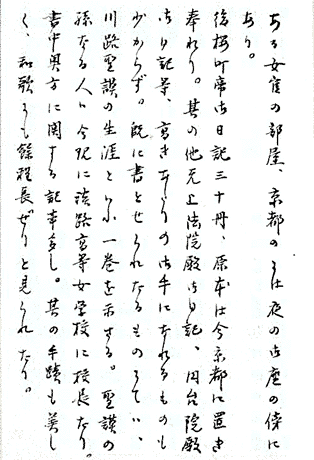 ある女官の部屋、京都の
あり。
後桜町帝御日記三十冊、原本は今京都に置き
奉れり。其の他无上法院殿御日記、円台院殿
御日記等、高きあたりの御手になれるものも
少からず。既に書とせられたるものにては、
川路聖謨の生涯といふ一巻を示さる。聖謨の
孫なる人、今現に淡路高等女学校に校長たり。
書中奥方に関する記事多し。其の手蹟も美し
く、和歌にも余程長ぜりと見られたり。